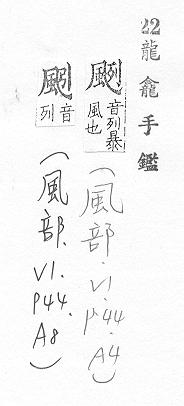 22 龍龕手鑑
颲 音列暴
風也
(風部.V1.P44.A4)
音
列
(風部.V1.P44.A8)